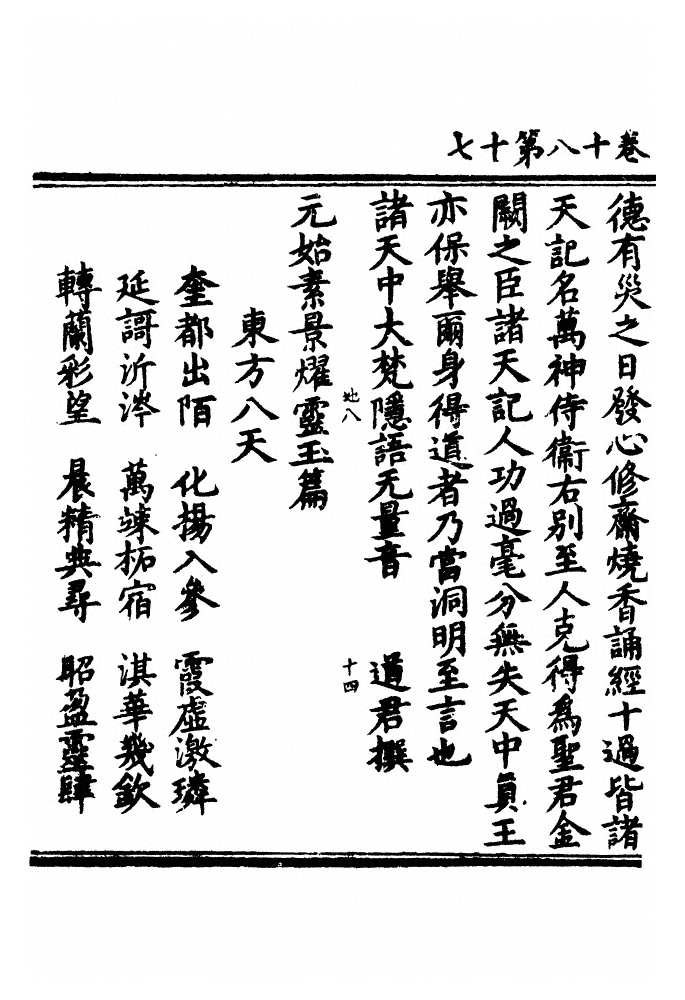 卷十八第十七
德有災之日發心修齋燒香誦經十過皆諸
天記名萬神侍衛右別至人克得為聖君金
闕之臣諸天記人功過毫分無失天中真王
亦保舉爾身得道者乃當洞明至言也
諸天中大梵隱語无量音 道君撰
地八 十四
元始素景燿靈玉篇
東方八天
奎都出陌 化揚入參 霞虛激璘
延謌沂涔 萬竦拓宿 淇華幾歛
轉蘭彩望 晨精典尋 昭盈靈肆